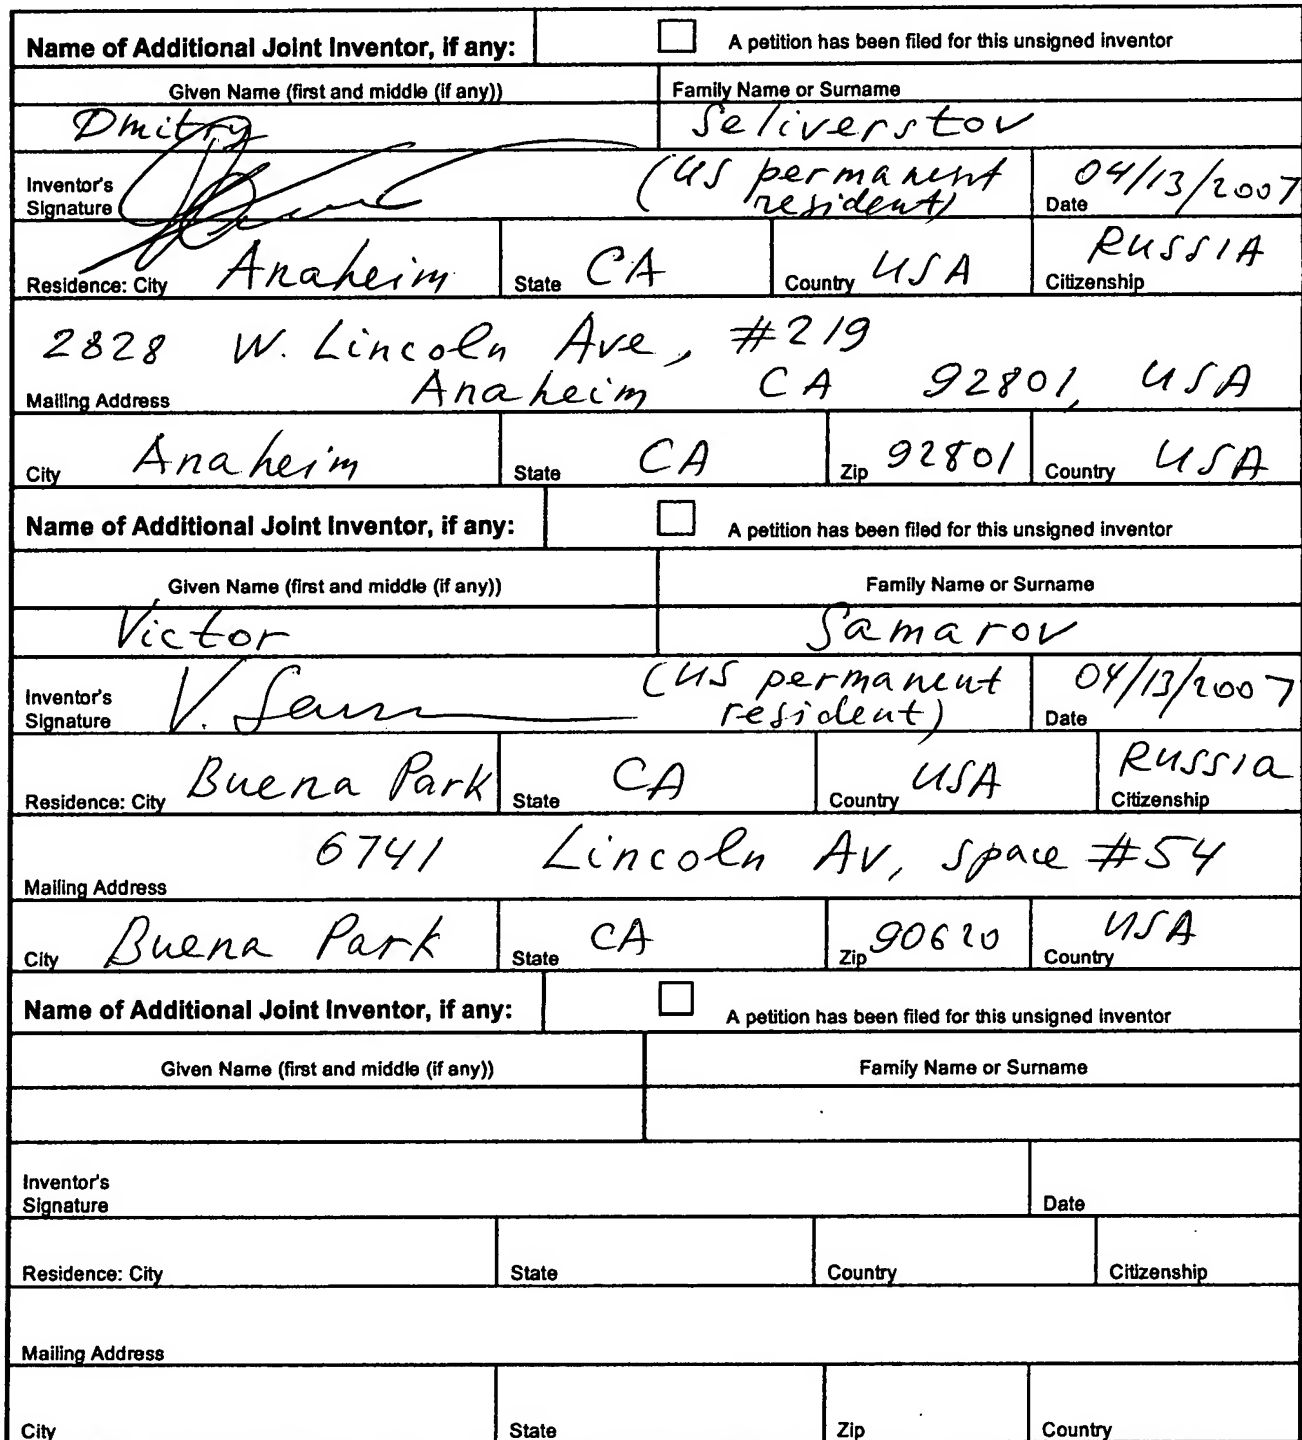 Name of Additional Joint Inventor, if any: A petition has been filed for this unsigned inventor
Given Name (first and middle (if any)) Family Name or Surname
Dmitry Seliverstov
Inventor's Signature (US permanent resident) Date 04/13/2007
Residence: City Anaheim State CA Country USA Citizenship RUSSIA
2828 W. Lincoln Ave, #219
Mailing Address Anaheim CA 92801, USA
City Anaheim State CA Zip 92801 Country USA
Name of Additional Joint Inventor, if any: A petition has been filed for this unsigned inventor
Given Name (first and middle (if any)) Family Name or Surname
Victor Samarov
Inventor's Signature V. (US permanent resident) Date 04/13/2007
Residence: City Buena Park State CA Country USA Citizenship RUSSIA
Mailing Address 6741 Lincoln Av, space #54
City Buena Park State CA Zip 90620 Country USA
Name of Additional Joint Inventor, if any: A petition has been filed for this unsigned inventor
Given Name (first and middle (if any)) Family Name or Surname
Inventor's Signature Date
Residence: City State Country Citizenship
Mailing Address
City State Zip Country